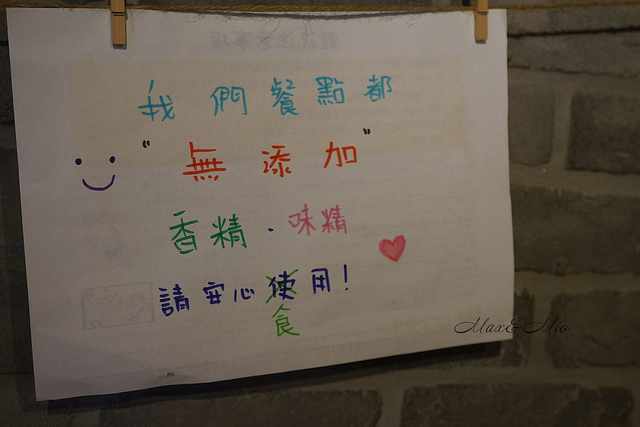 我們餐點都
"無添加"
香精.味精
請安心使用!
食
Max&Mio